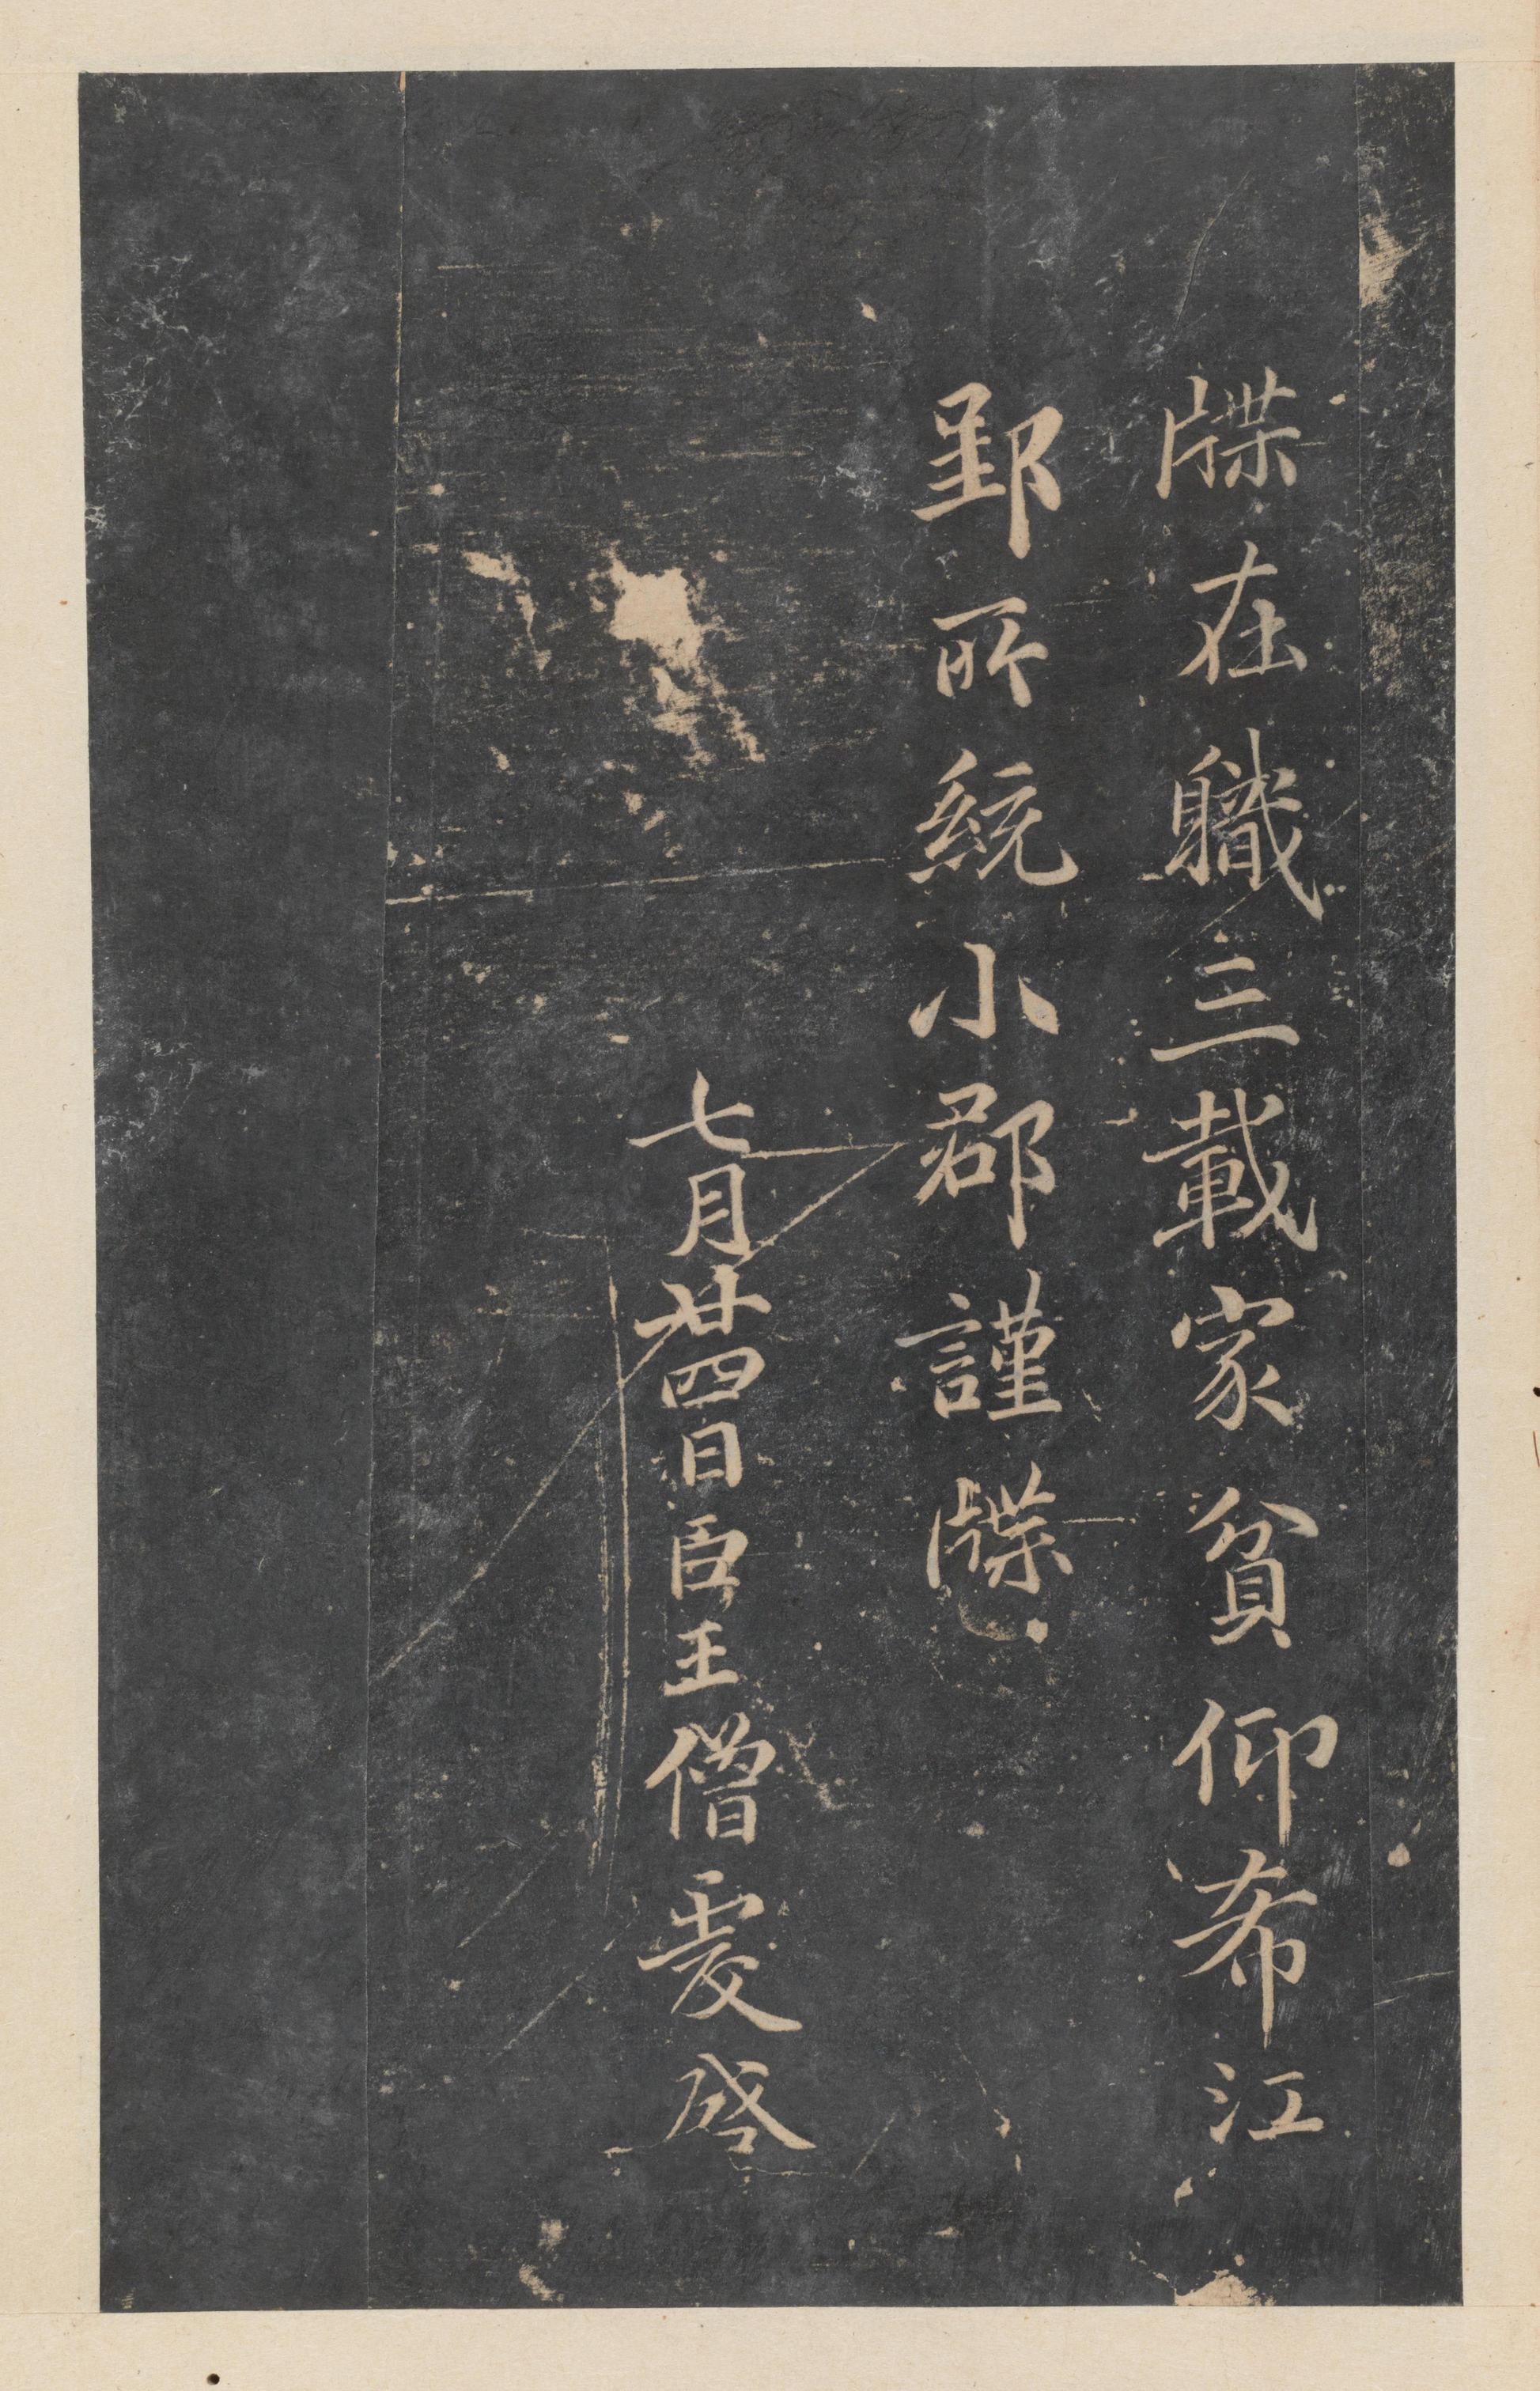 牒在職三載家貧仰希江
郢所統小郡謹牒
七月廿四日臣王僧虔啓